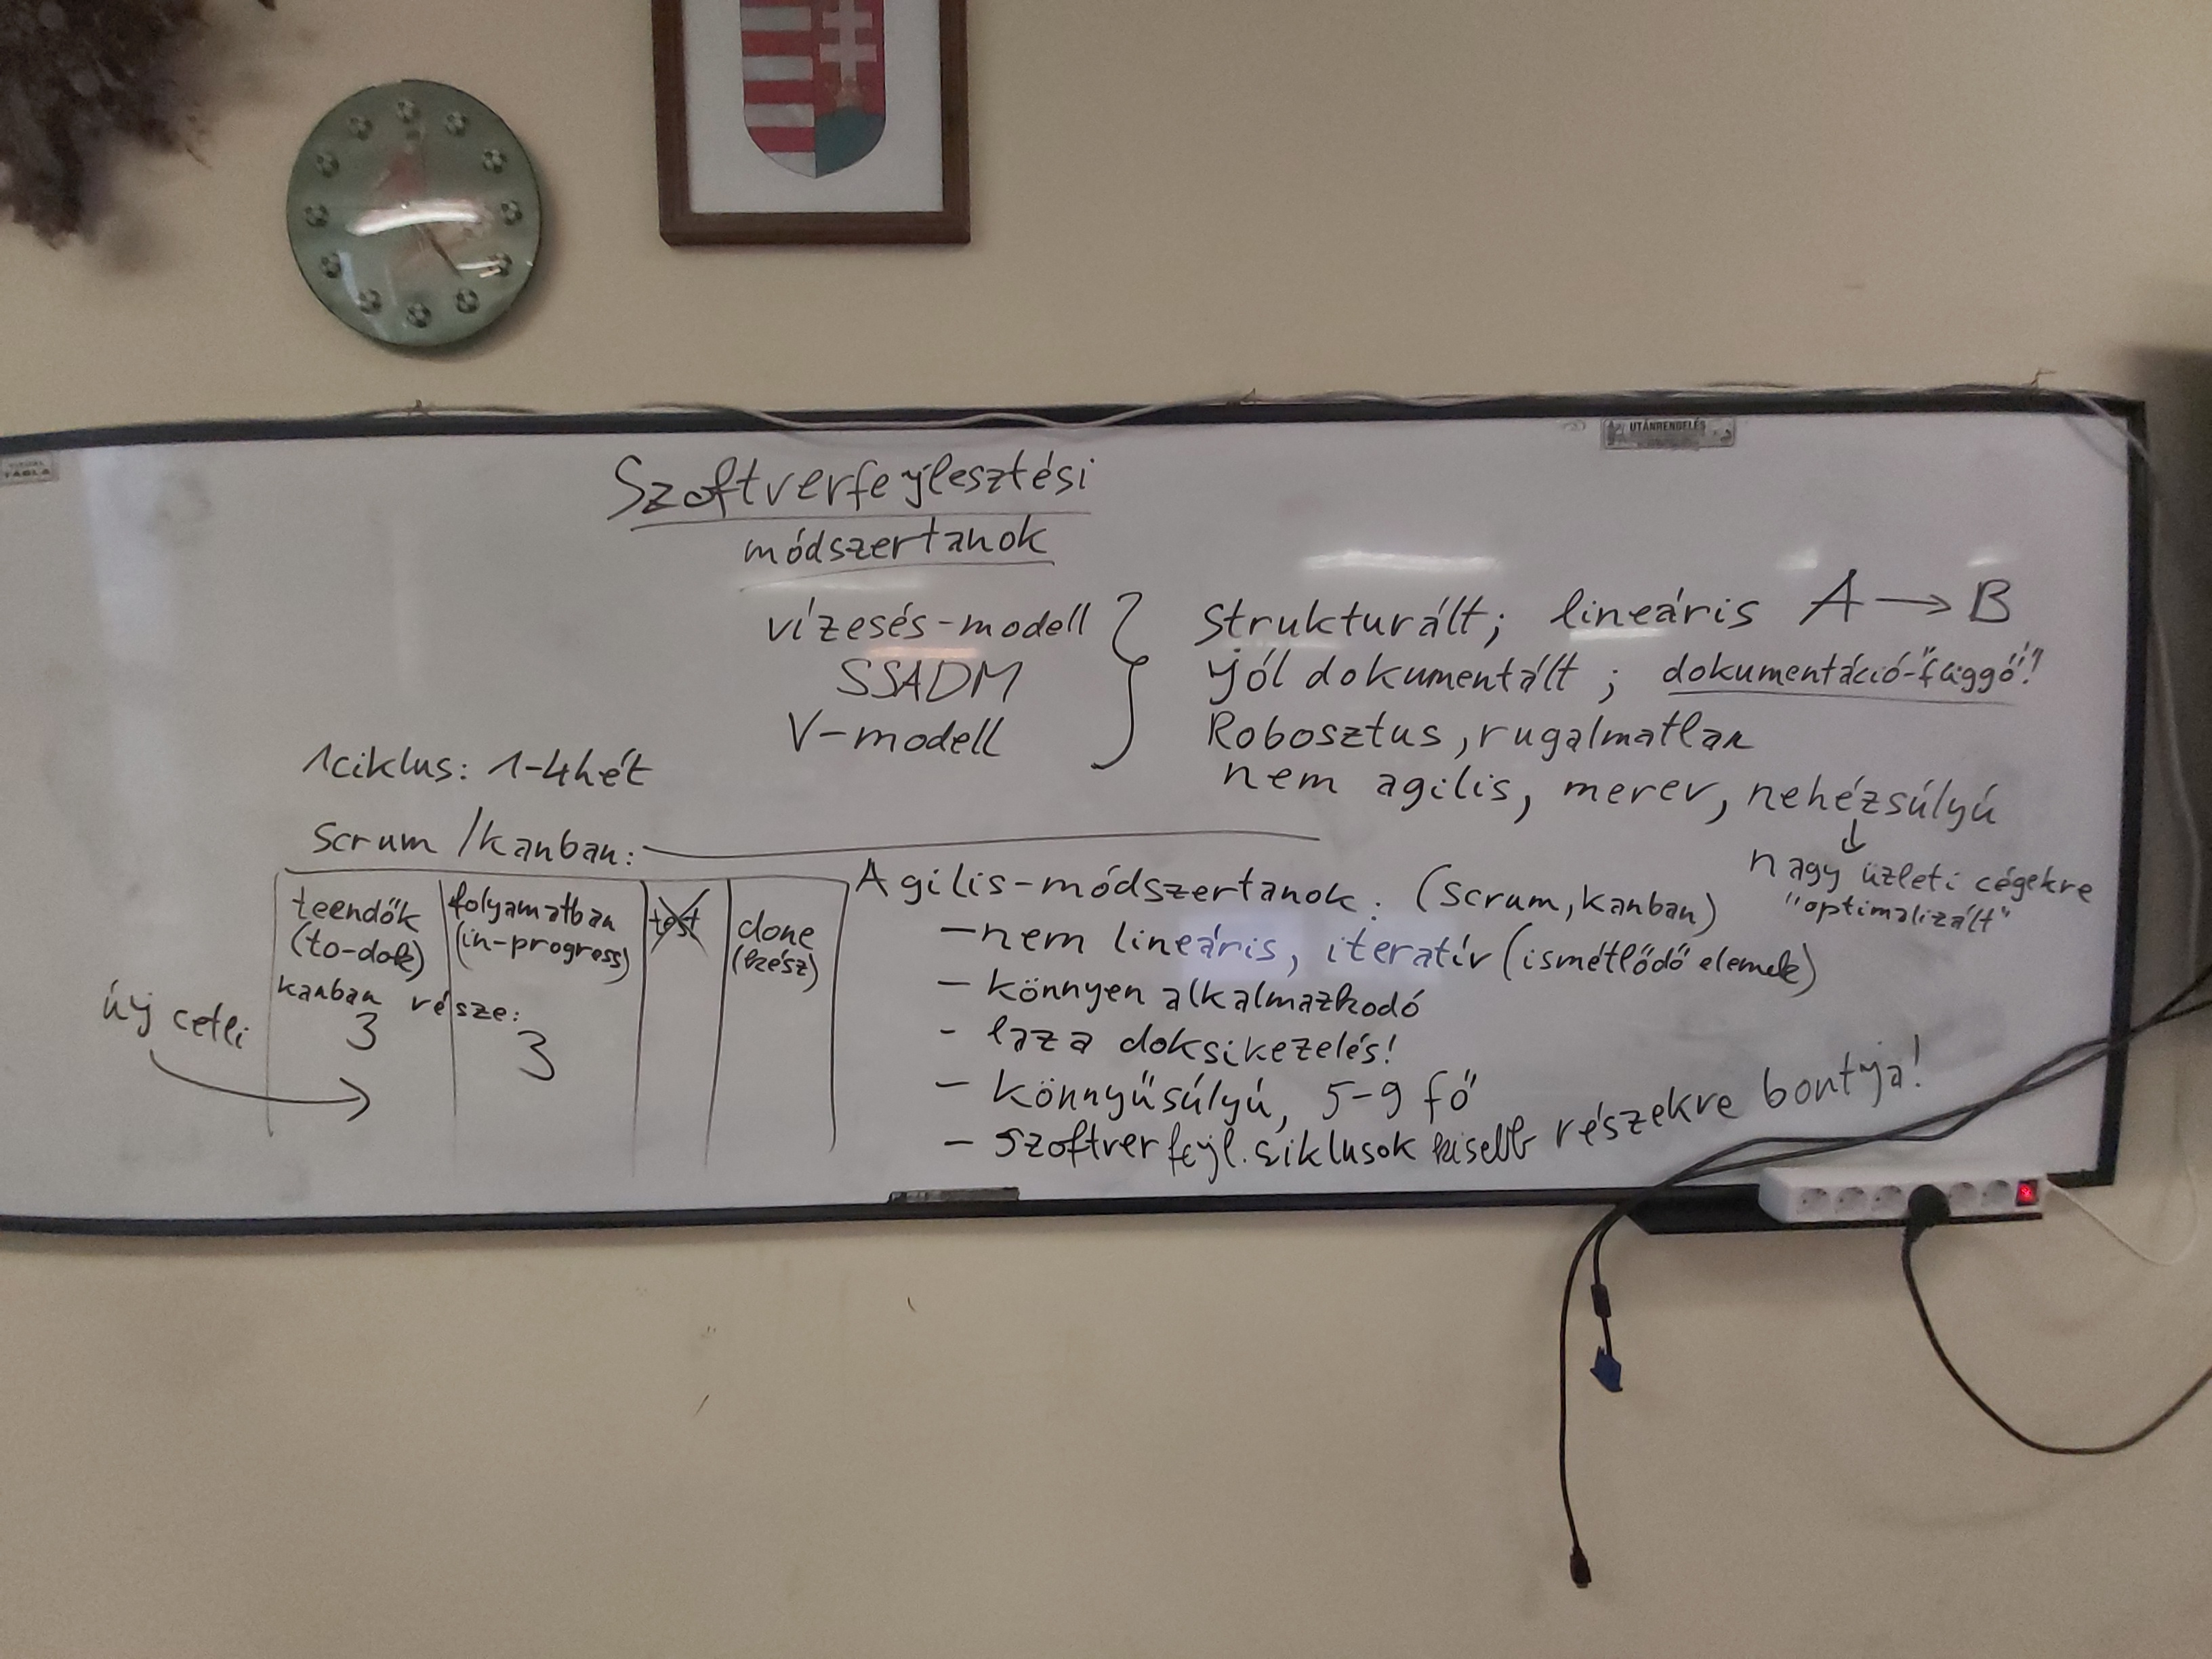 UTÁNRENDELÉS
TÁBLA
Szoftverfejlesztési
módszertanok
vízesés-modell
SSADM
V-modell
Strukturált; lineáris A → B
jól dokumentált; dokumentáció-függő!!
Robosztus, rugalmatlan
nem agilis, merev, nehézsúlyú
↓
nagy üzleti cégekre
"optimalizált"
1ciklus: 1-4hét
scrum /kanban:
teendők
(to-dok)
folyamatban
(in-progress)
test
done
(kész)
kanban része:
3
3
új cetli
Agilis-módszertanok: (scrum, kanban)
- nem lineáris, iteratív (ismétlődő elemek)
- könnyen alkalmazkodó
- laza doksikezelés!
- könnyűsúlyú, 5-9 fő
- szoftverfejl. ciklusok kisebb részekre bontja!